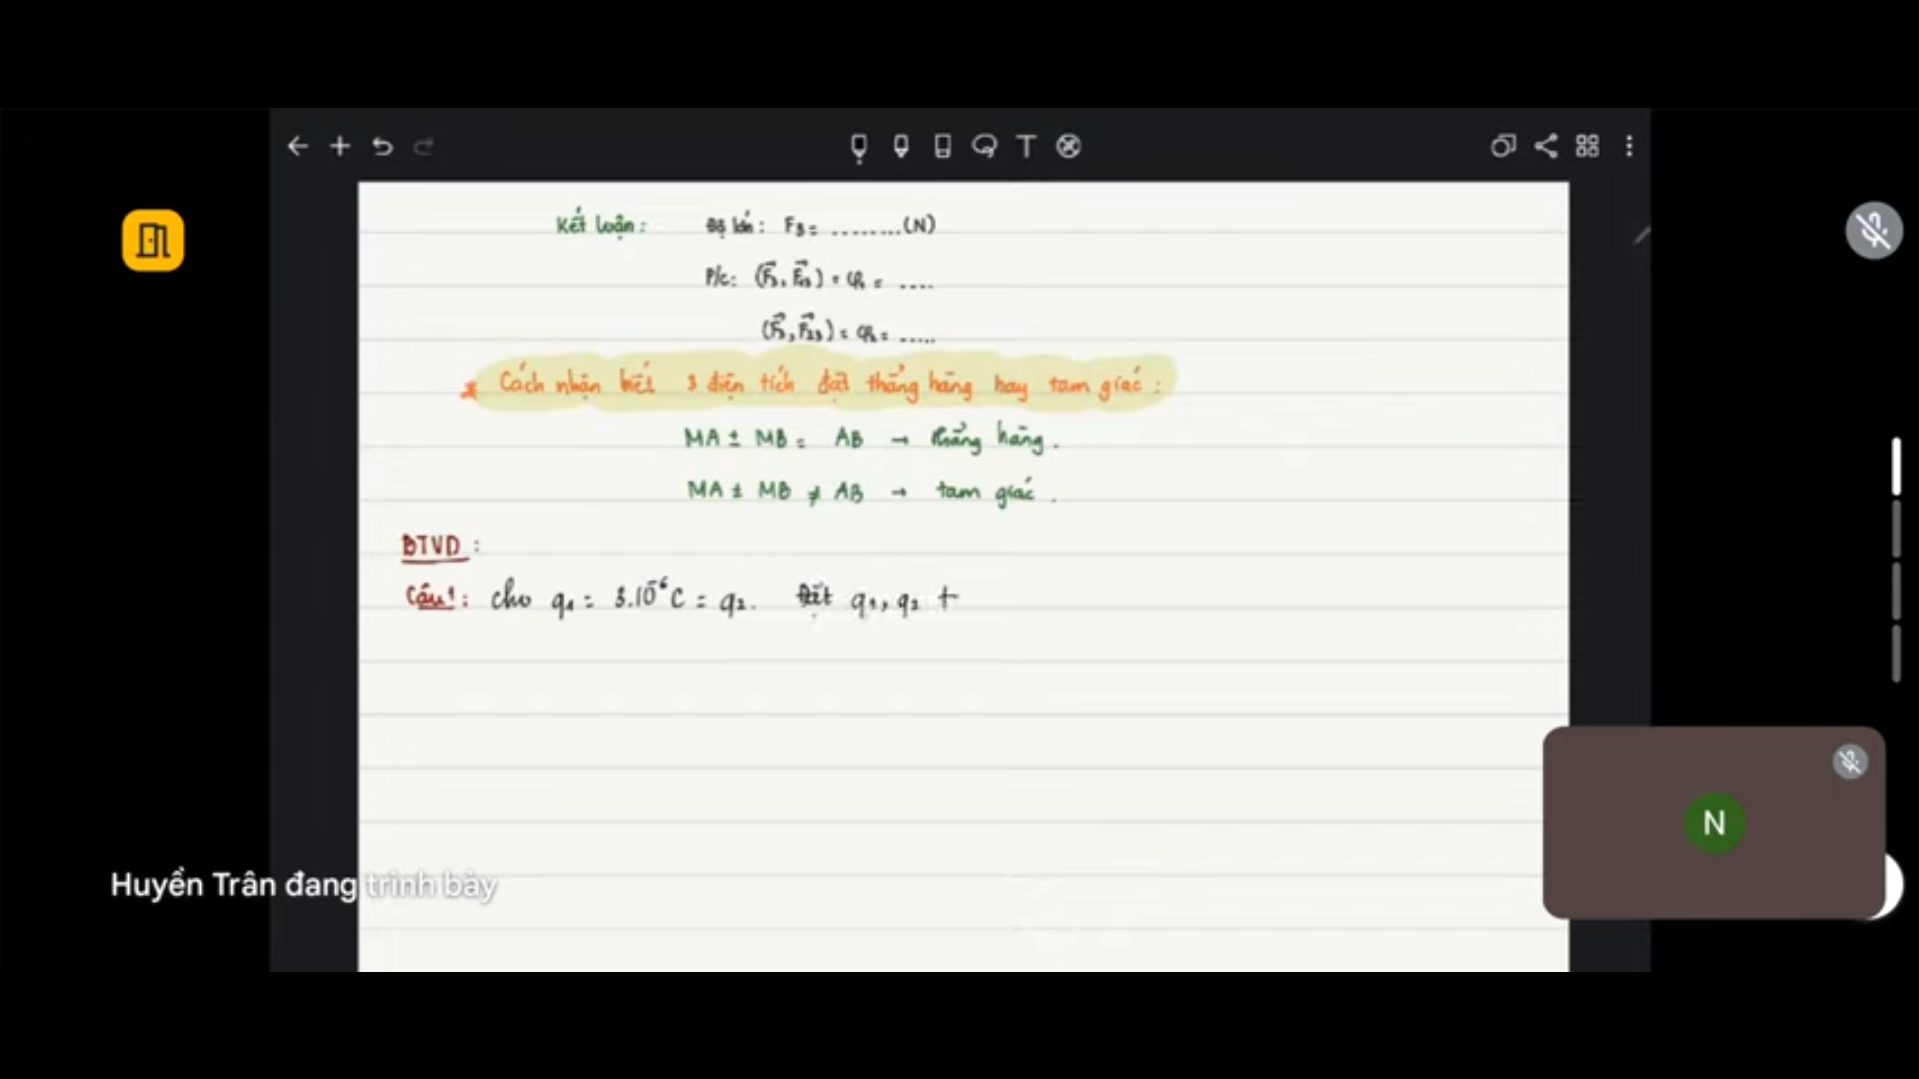 Kết luận: Độ lớn: F₃ = ........(N)
P/c: (F⃗₃, F⃗₁₃) = φ₁ = ....
(F⃗₃, F⃗₂₃) = φ₂ = .....
* Cách nhận biết 3 điện tích đặt thẳng hàng hay tam giác:
MA ± MB = AB → thẳng hàng.
MA ± MB ≠ AB → tam giác.
BTVD:
Câu 1: cho q₁ = 3.10⁻⁶C = q₂. Đặt q₁, q₂ t
N
Huyền Trân đang trình bày